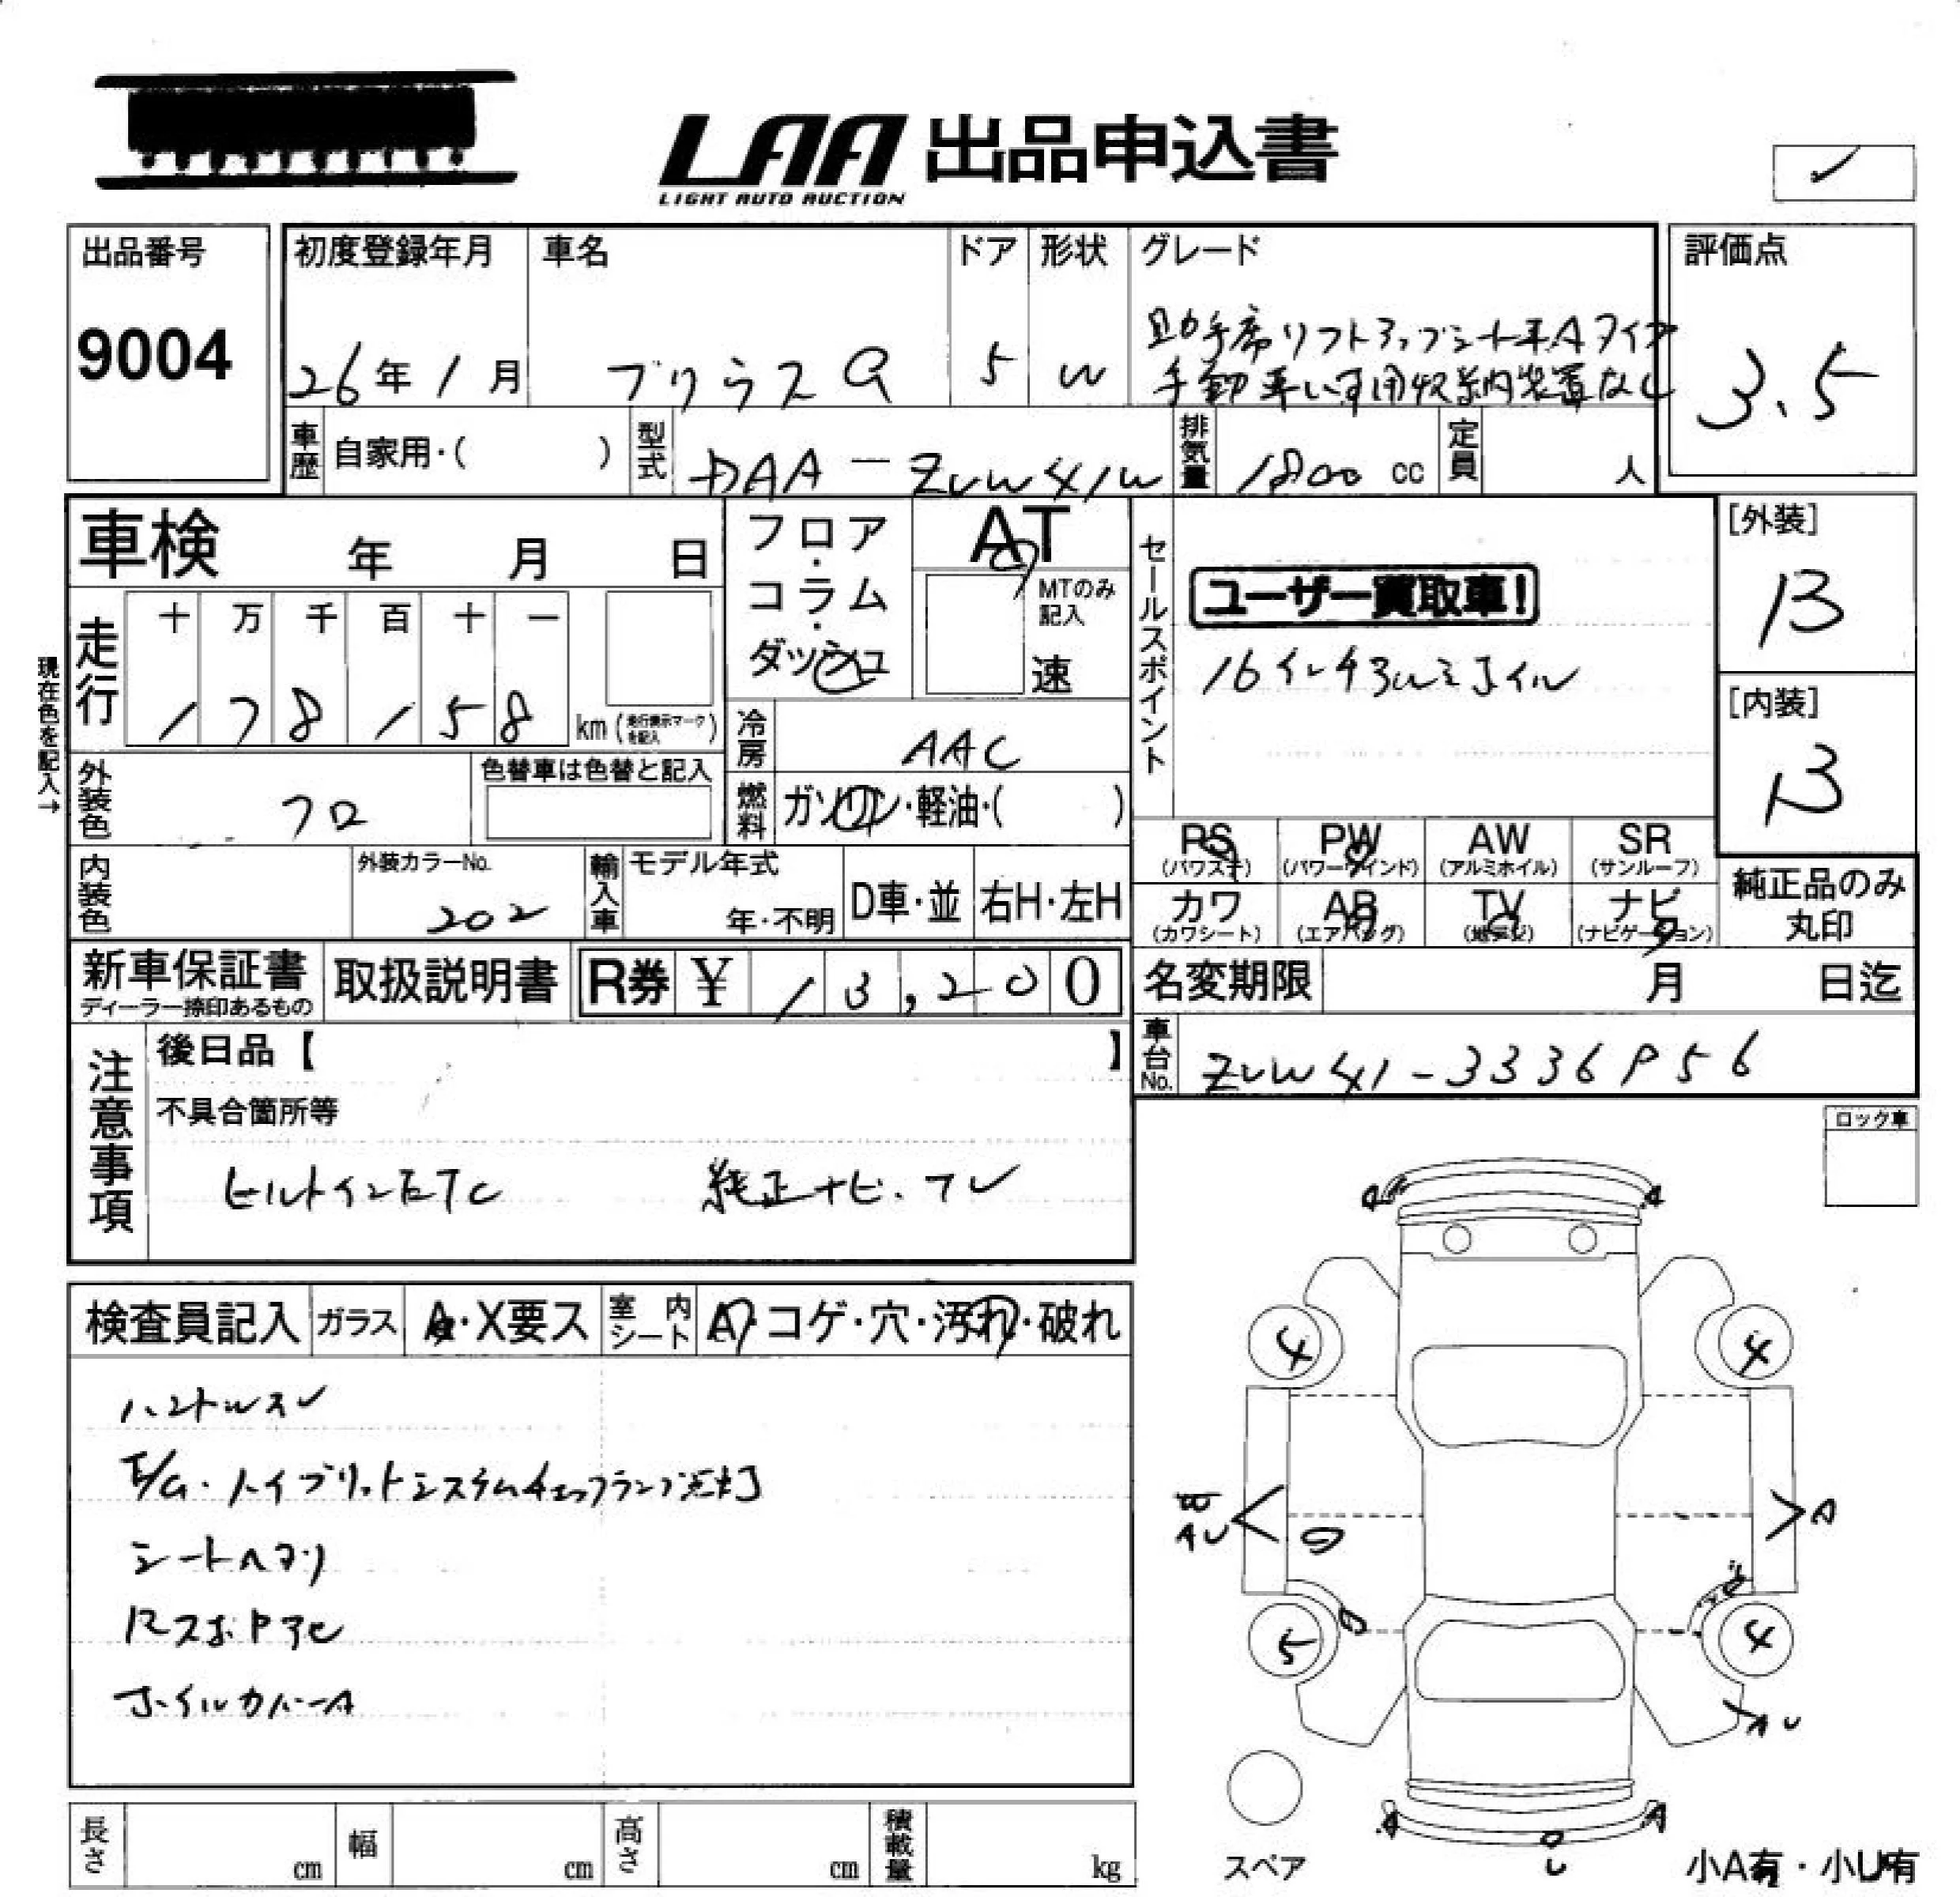 LAA 出品申込書
LIGHT AUTO AUCTION
出品番号
9004
初度登録年月
26年1月
車名
プリウスα
ドア
5
形状
W
グレード
助手席リフトアップシート車Aタイプ
手動車いす用収納装置なし
評価点
3.5
車歴
自家用・( )
型式
DAA-ZVW41W
排気量
1800 cc
定員
人
車検 年 月 日
フロア・コラム・ダッシュ
AT
MTのみ記入
速
セールスポイント
ユーザー買取車!
16インチアルミホイル
[外装]
B
[内装]
B
現在色を記入→
走行
十 万 千 百 十 一
1 7 8 1 5 8 km (走行表示マークを記入)
冷房
AAC
外装色
クロ
色替車は色替と記入
燃料
ガソリン・軽油・( )
PS (パワステ)
PW (パワーウインド)
AW (アルミホイル)
SR (サンルーフ)
カワ (カワシート)
AB (エアバッグ)
TV (地デジ)
ナビ (ナビゲーション)
純正品のみ丸印
内装色
外装カラーNo.
202
輸入車
モデル年式
年・不明
D車・並
右H・左H
新車保証書
ディーラー捺印あるもの
取扱説明書
R券 ¥ 13,200
名変期限 月 日迄
車台No.
ZVW41-3336956
注意事項
後日品【 】
不具合箇所等
ビルトインETC 純正ナビ.TV
ロック車
検査員記入
ガラス
A・X要ス
室内シート
A・コゲ・穴・汚れ・破れ
ハンドルスレ
E/G・ハイブリットシステムチェックランプ点灯
シートヘタリ
ホイルカバーA
A A
4 4
A
U
5 4
AU
A A
U
スペア
小A有・小U有
長さ cm
幅 cm
高さ cm
積載量 kg